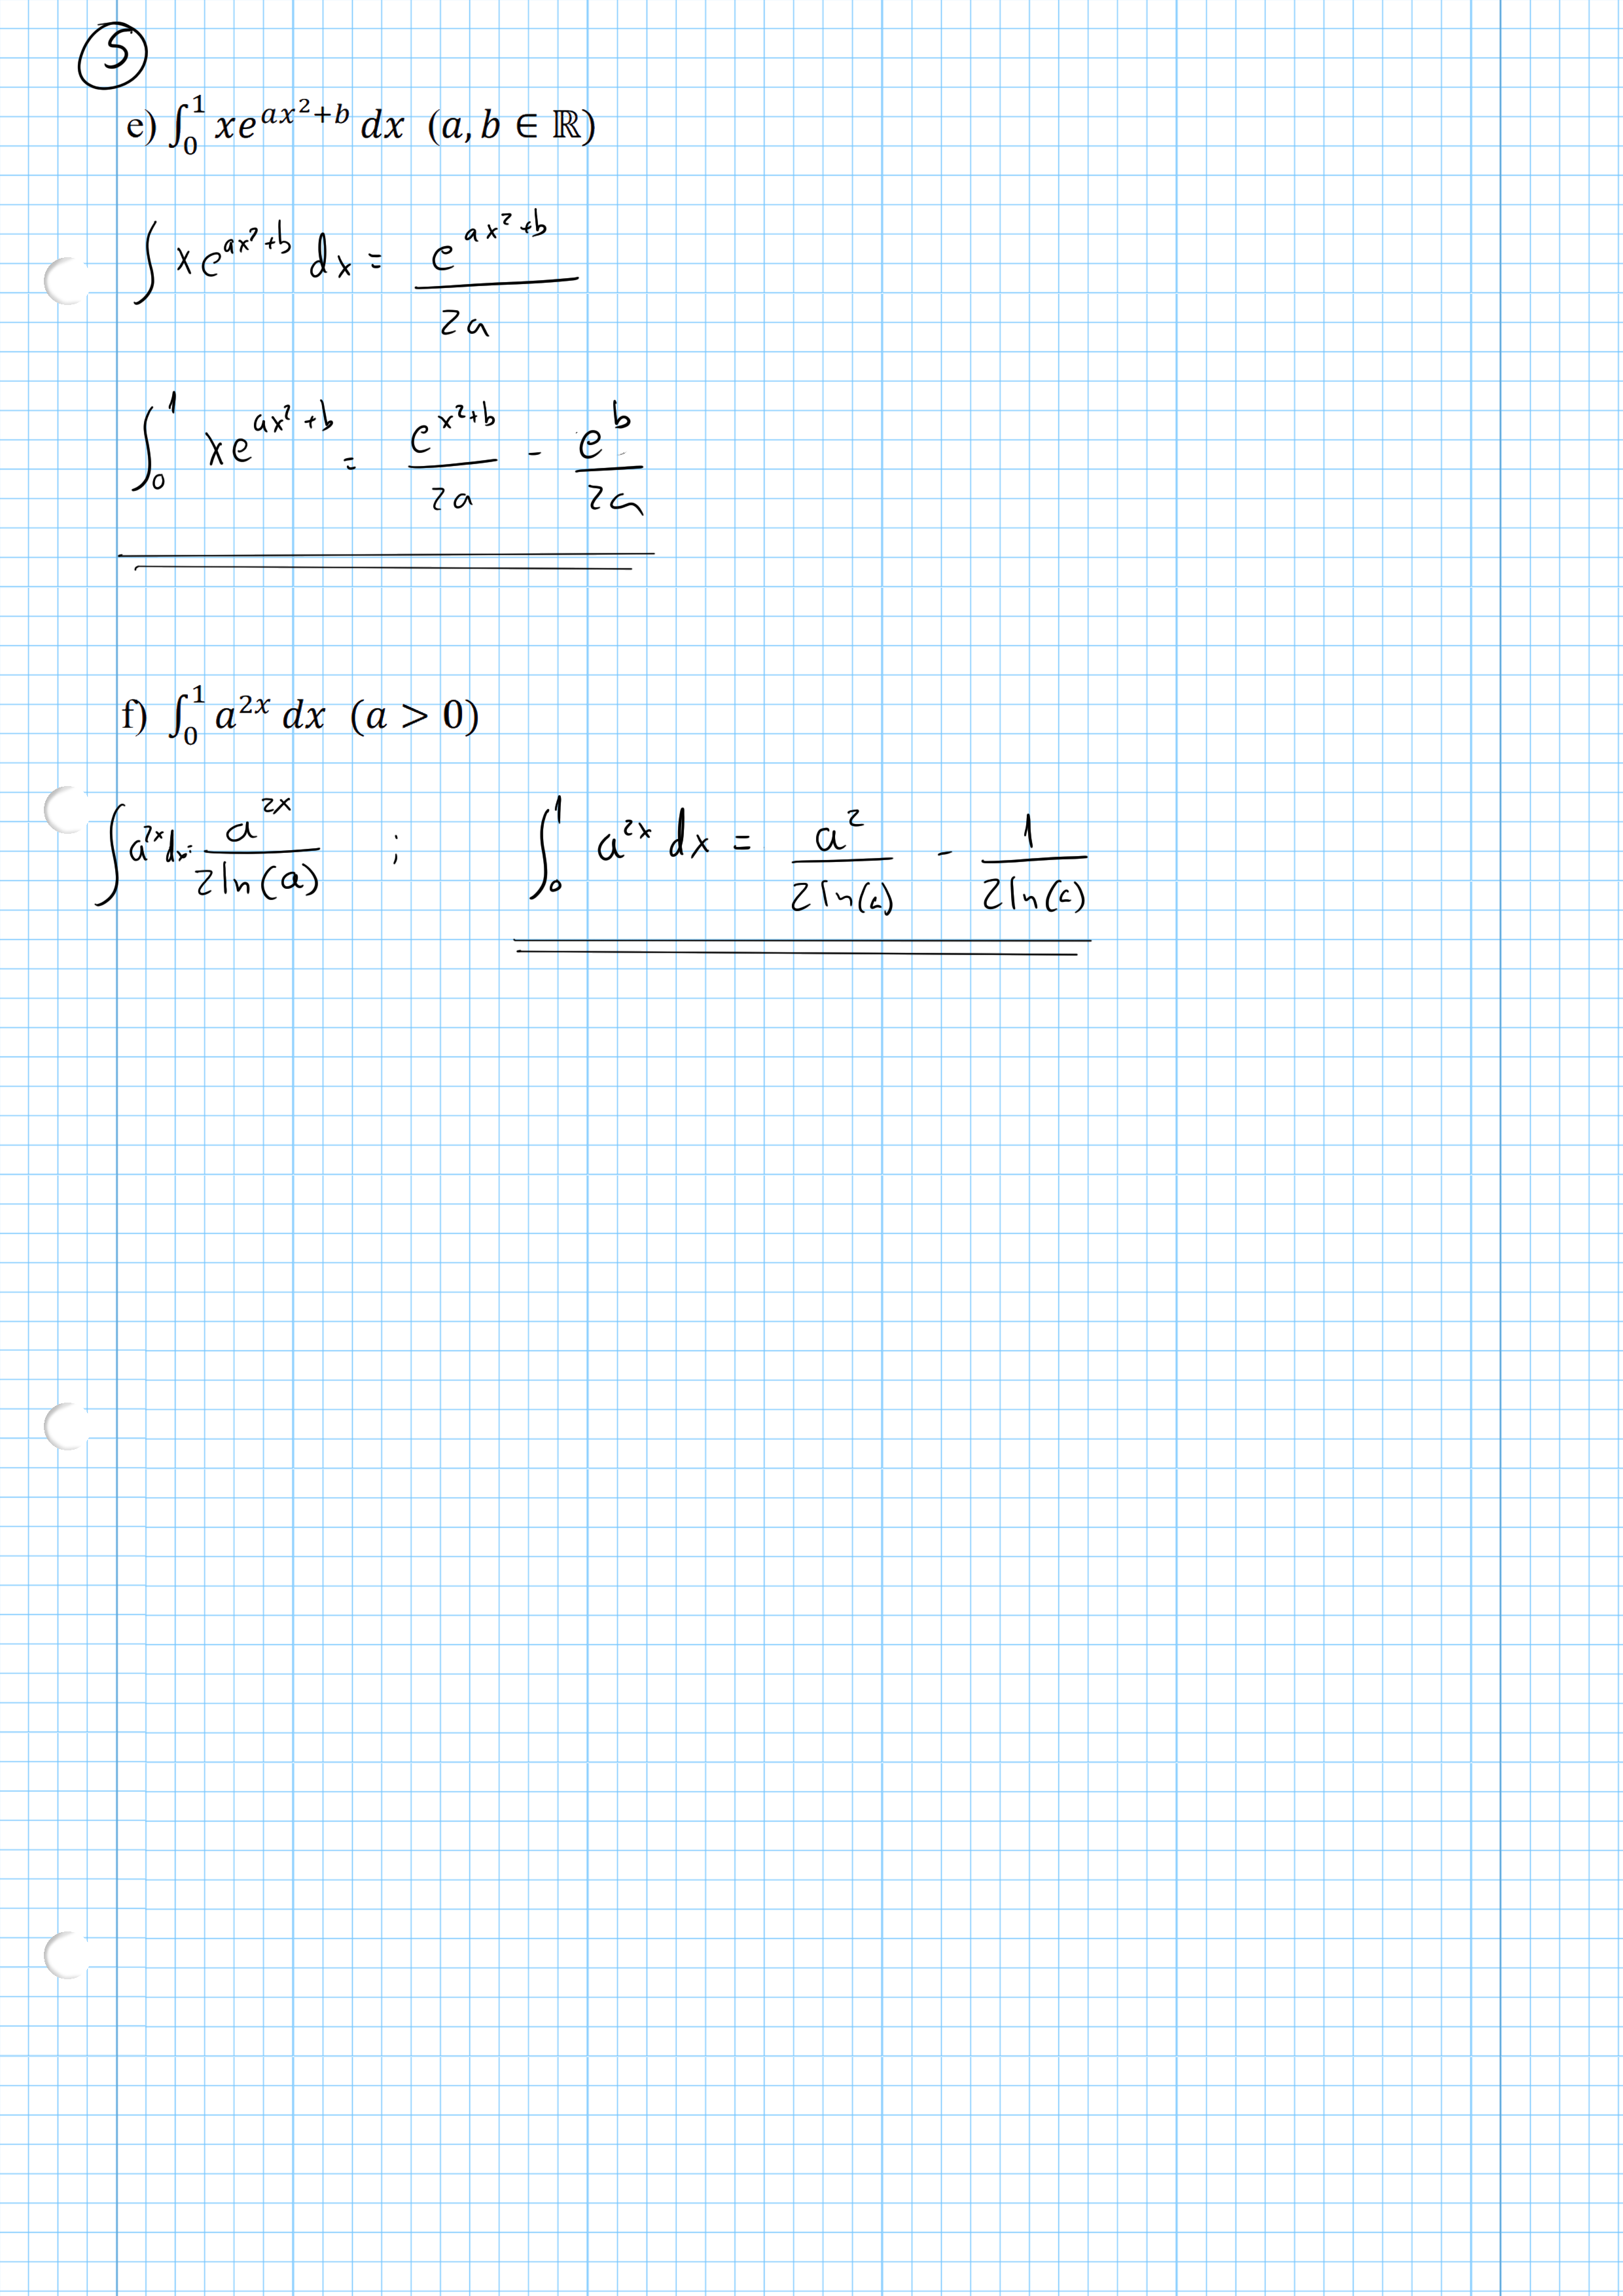 5
e) ∫₀¹ xe^{ax²+b} dx (a, b ∈ ℝ)
∫ xe^{ax²+b} dx = e^{ax²+b} / 2a
∫₀¹ xe^{ax²+b} = e^{x²+b} / 2a - e^b / 2a
f) ∫₀¹ a^{2x} dx (a > 0)
∫ a^{2x} dx = a^{2x} / 2 ln(a) ; ∫₀¹ a^{2x} dx = a² / 2 ln(a) - 1 / 2 ln(a)